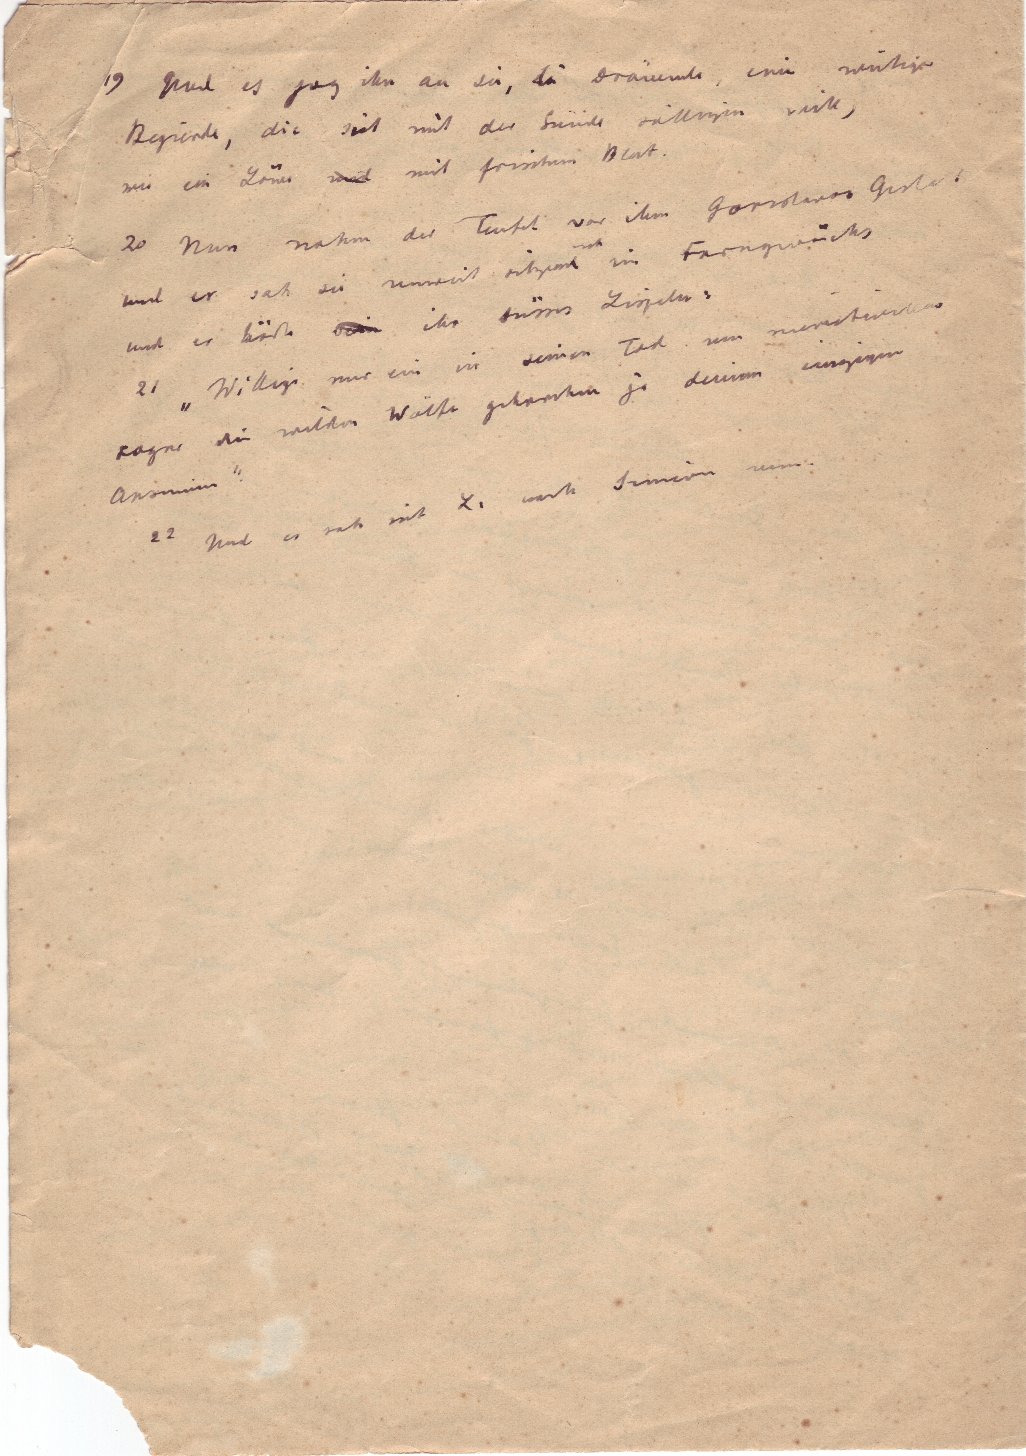 19 Und es zog ihn an sie, die dräuende, eine wütige
Begierde, die sich mit der Sünde sättigen will,
wie ein Löwe mit frischem Blut.
20 Nun nahm der Teufel vor ihm Gestalt
und er sah sie unweit sitzend im Farngewächs
und er hörte ihr süsses Lispeln:
21 „Willige nur ein in seinen Tod
sogar die wilden Wölfe gehorchen ja deinem einzigen
Ansinnen“.
22 Und er sah sich nach Simeon um.